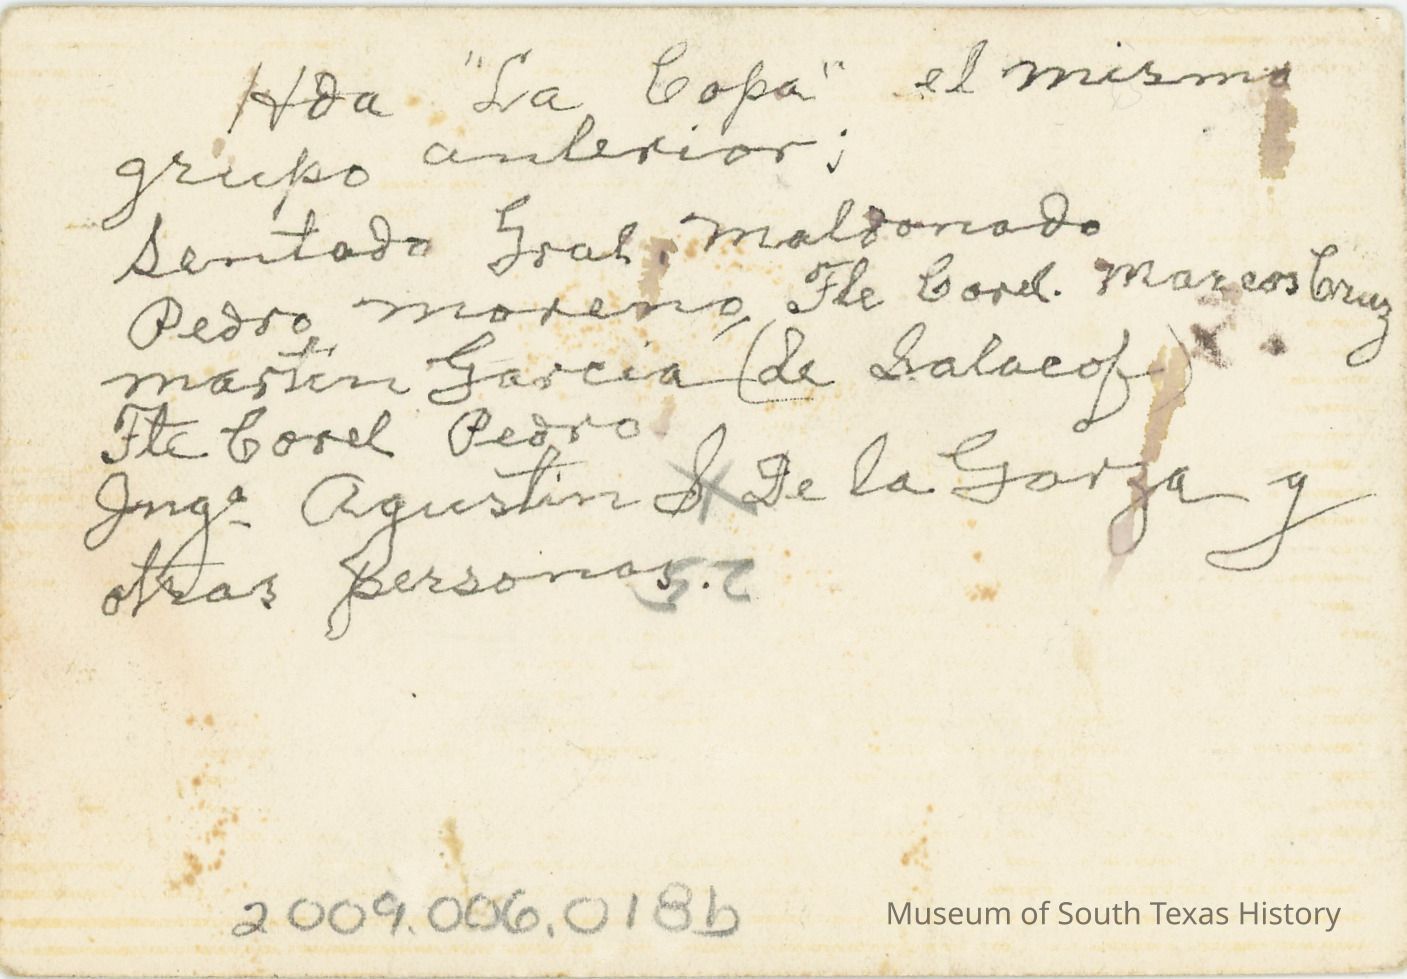 Hda "La Copa" el mismo
grupo anterior;
Sentado Gral. Maldonado
Pedro Moreno, Tte Corel. Marcos Cruz
Martin Garcia (de
Tte Corel Pedro
Ingo. Agustin S De la Garza y
otras personas.
25
2009.006.018b
Museum of South Texas History